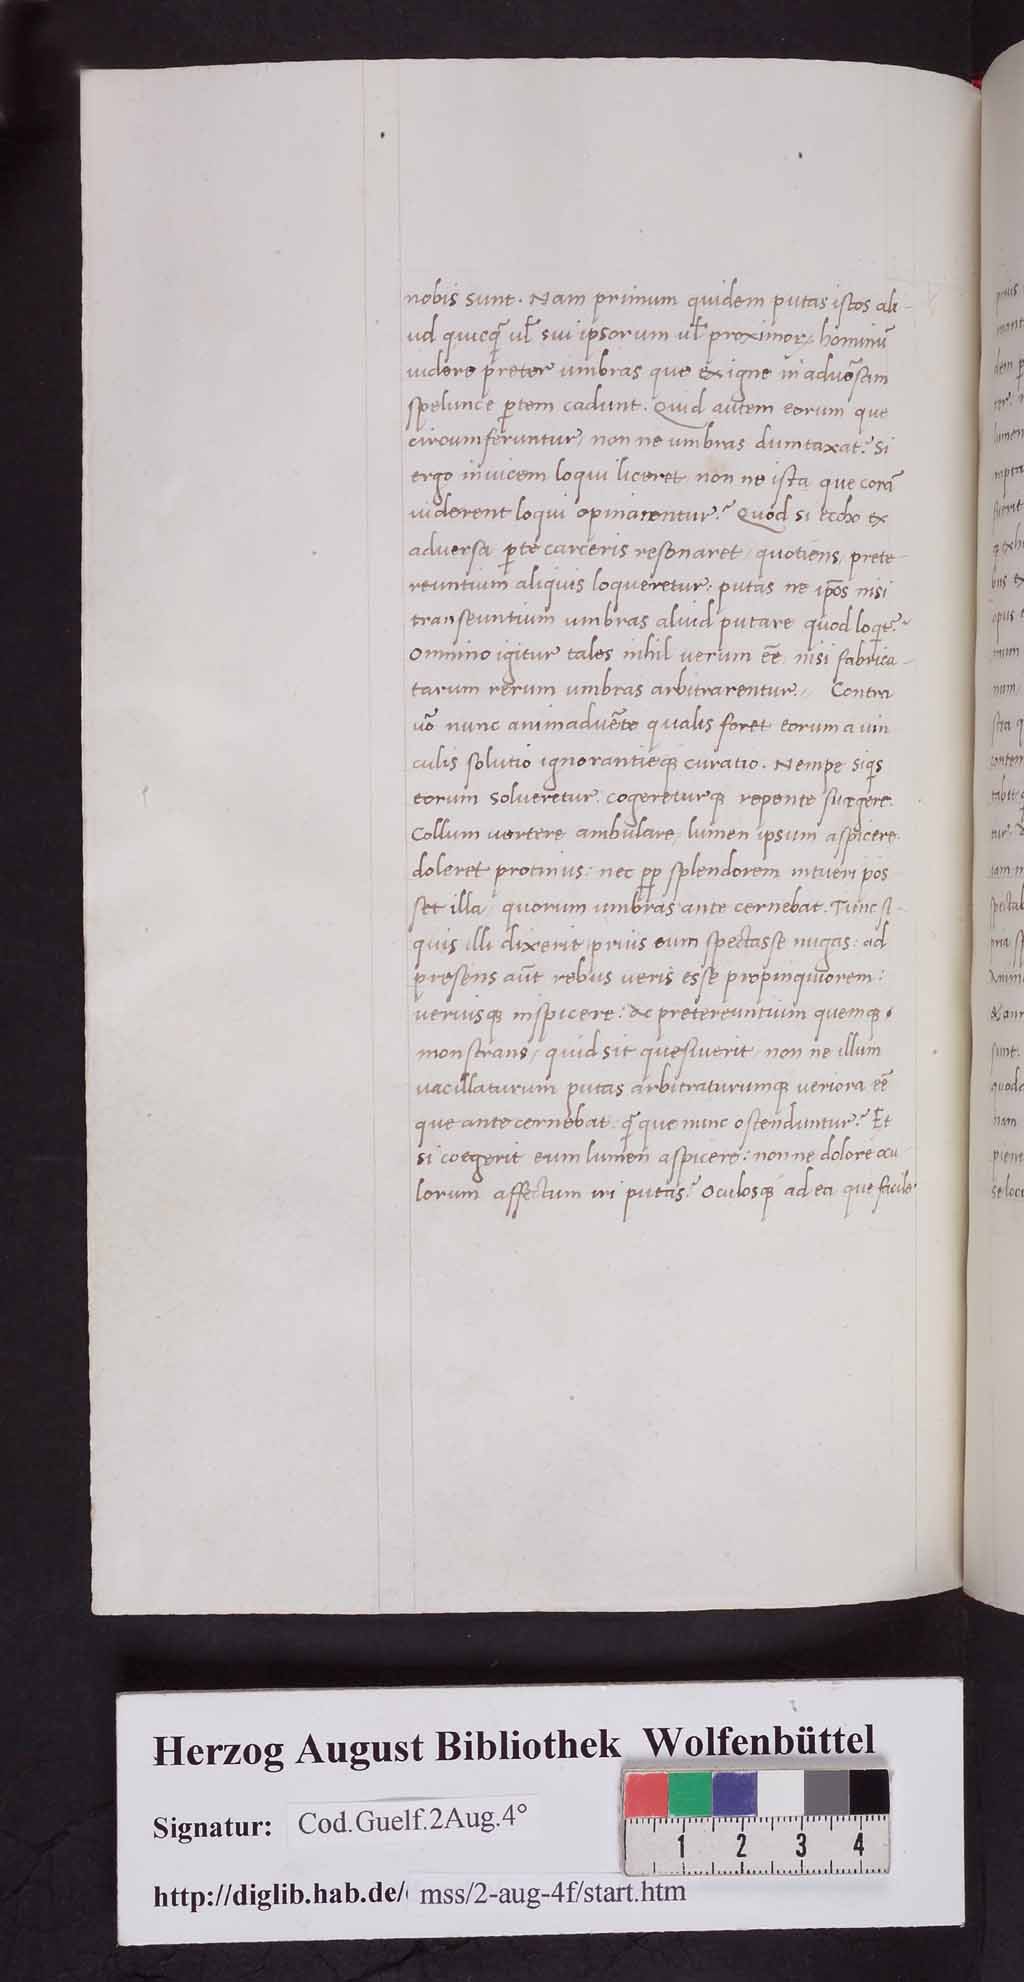 nobis sunt. Nam primum quidem putas istos ali-
ud quicq̃ ul̃ sui ipsorum ul̃ proximorꝝ hominũ
uidere preter umbras que ex igne in aduẽsam
spelunce ꝑtem cadunt. Quid autem eorum que
circumferuntur, non ne umbras dumtaxat? Si
ergo inuicem loqui liceret non ne ista que corã
uiderent loqui opinarentur? Quod si eccho ex
aduersa ꝑte carceris resonaret / quotiens / prete
reuntium aliquis loqueretur: putas ne ip̃os nisi
transeuntium umbras aliud putare quod loqt̃?
Omnino igitur tales nihil uerum eẽ, nisi fabrica-
tarum rerum umbras arbitrarentur. Contra
uõ nunc animaduẽte qualis foret eorum a uin
culis solutio ignorantieqꝫ curatio. Nempe siqͥs
eorum solueretur cogereturqꝫ repente surgere.
Collum uertere ambulare, lumen ipsum aspicere
doleret protinus: nec ꝓp splendorem intueri pos
set illa / quorum umbras ante cernebat. Tunc si-
quis illi dixerit prius eum spectasse nugas: ad
presens aũt rebus ueris esse propinquiorem:
ueriusqꝫ inspicere: ac pretereuntium quemqꝫ
monstrans / quid sit quesiuerit / non ne illum
uacillaturum putas arbitraturumqꝫ ueriora eẽ
que ante cernebat q̃ que nunc ostenduntur? Et
si coegerit eum lumen aspicere: non ne dolore ocu
lorum affectum iri putas? Oculosqꝫ ad ea que facile
Herzog August Bibliothek Wolfenbüttel
Signatur: Cod.Guelf.2Aug.4°
1 2 3 4
http://diglib.hab.de/ mss/2-aug-4f/start.htm